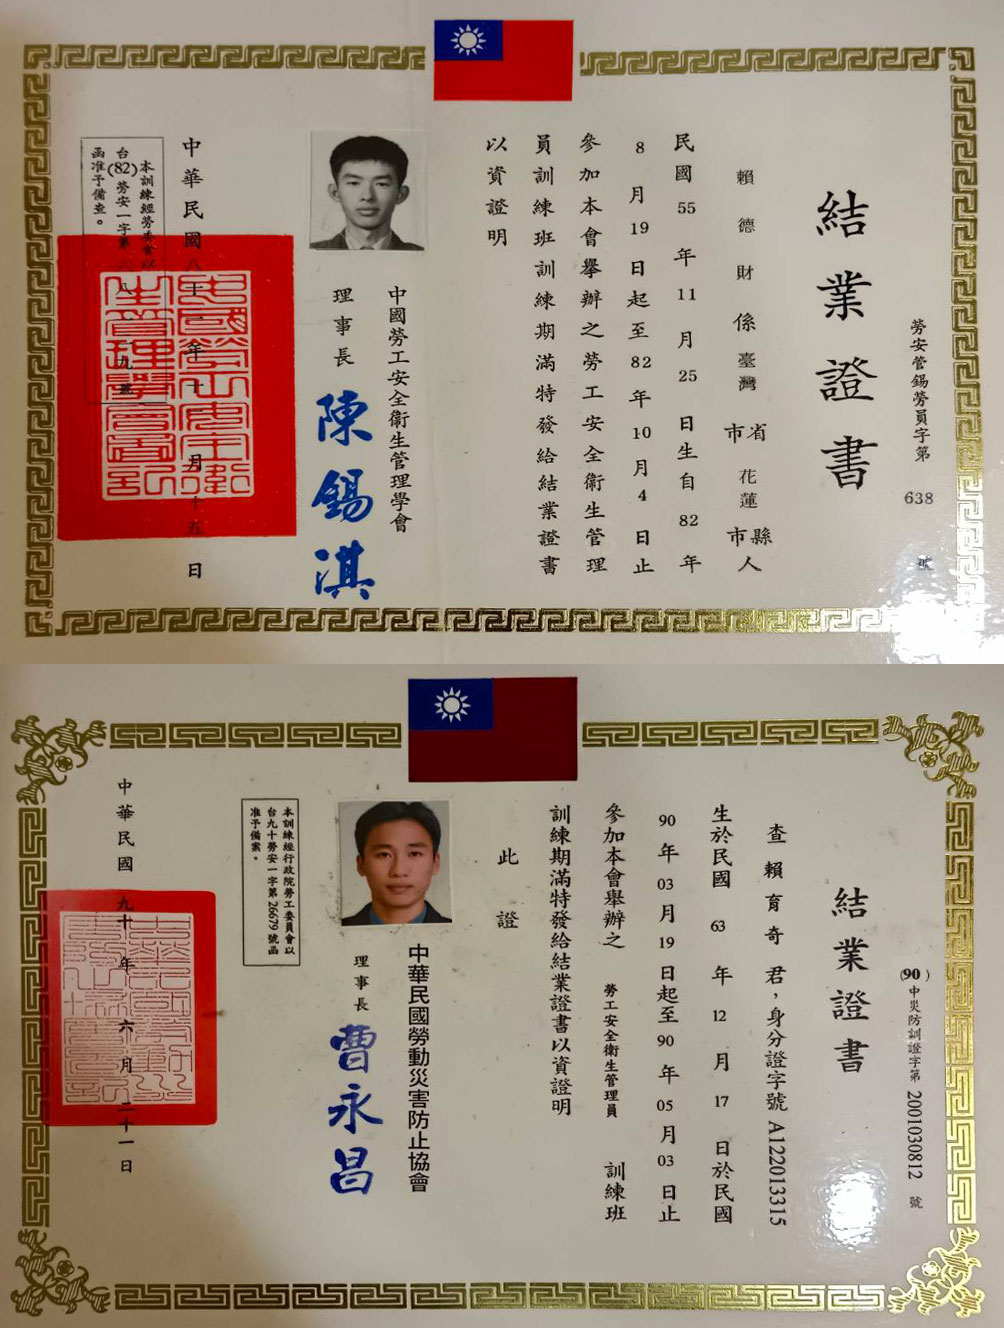 結業證書
勞安管錫勞員字第 638 號
賴德財 係 臺灣 省市 花蓮 縣市 人
民國 55 年 11 月 25 日生自 82 年
8 月 19 日起至 82 年 10 月 4 日止
參加本會舉辦之勞工安全衛生管理
員訓練班訓練期滿特發給結業證書
以資證明
中國勞工安全衛生管理學會
理事長 陳錫淇
中華民國八十二年十月十五日
本訓練經勞委會以
台(82)勞安一字第
函准予備查。
結業證書
(90)中災防訓證字第 2001030812 號
查賴育奇 君，身分證字號 A122013315
生於民國 63 年 12 月 17 日於民國
90 年 03 月 19 日起至 90 年 05 月 03 日止
參加本會舉辦之 勞工安全衛生管理員 訓練班
訓練期滿特發給結業證書以資證明
此證
中華民國勞動災害防止協會
理事長 曹永昌
本訓練經行政院勞工委員會以
台九十勞安一字第 26679 號函
准予備案。
中華民國九十年六月二十一日